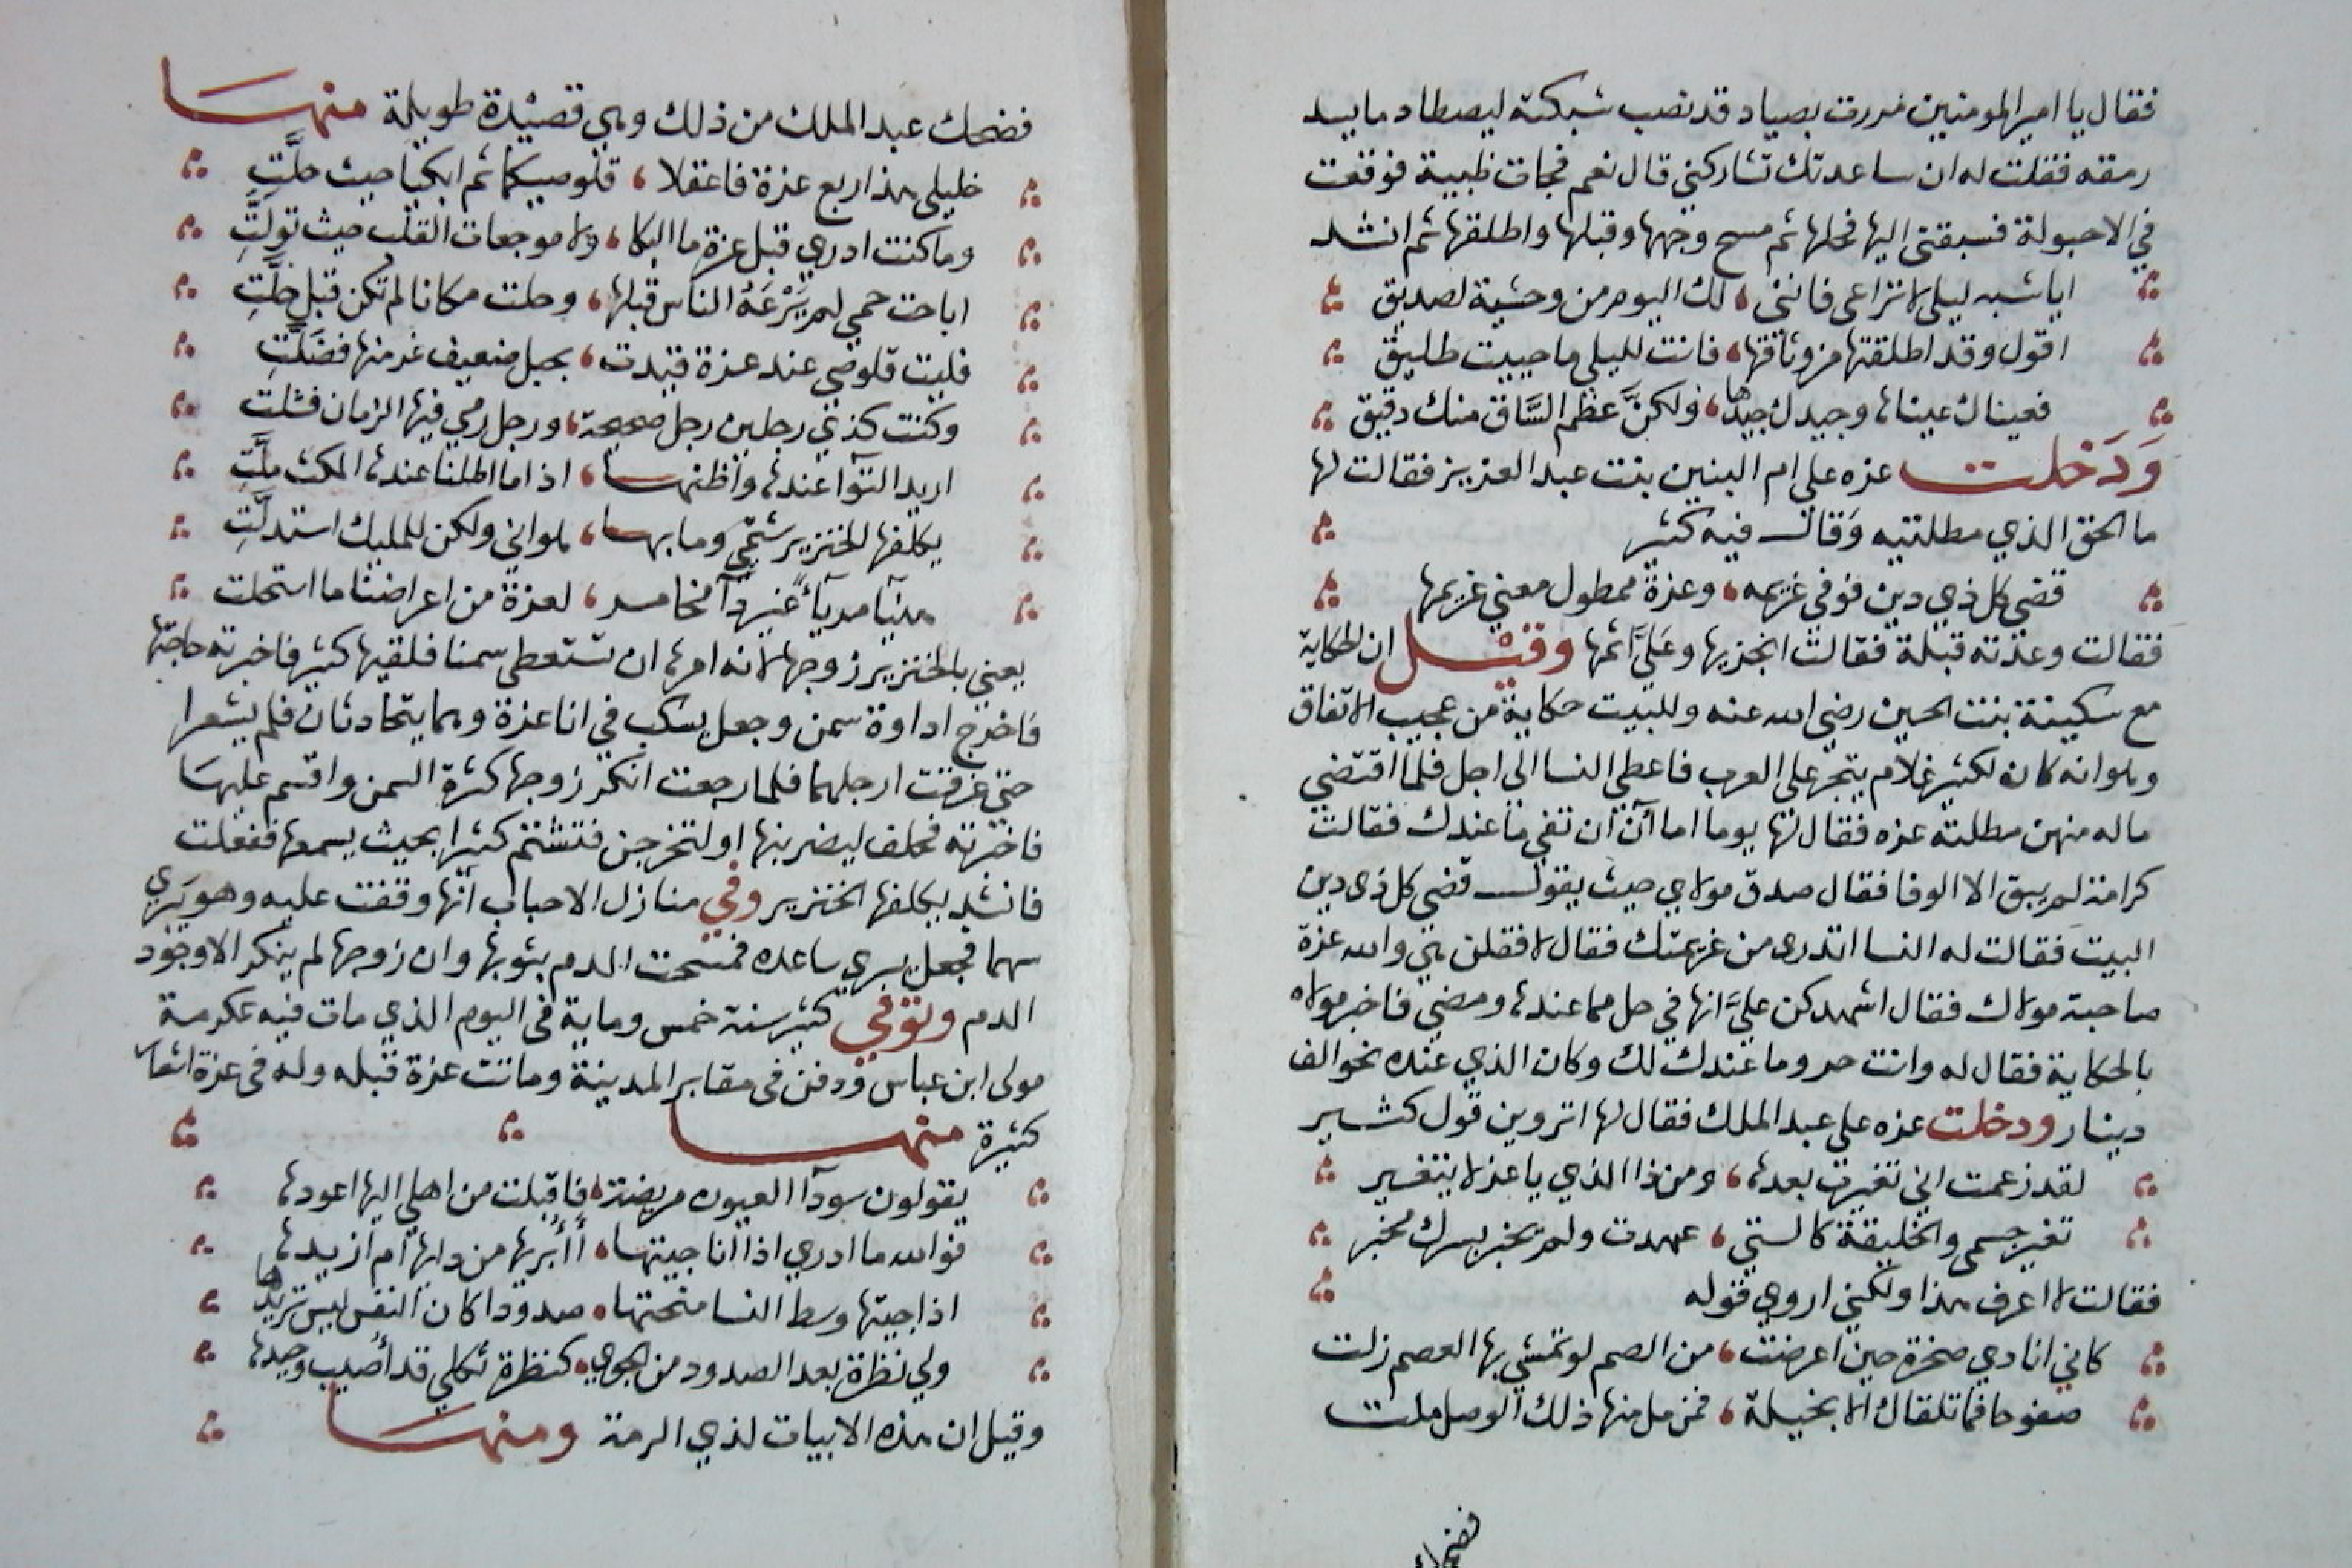 فقال يا امير المومنين مررت بصياد قد نصب شبكة ليصطاد ما يسد
رمقه فقلت له ان ساعدتك تشاركني قال نعم فجات ظبية فوقعت
في الاحبولة فسبقتني اليها فحلها ثم مسح وجهها وقبلها واطلقها ثم انشد
ايا شبه ليلى لا تراعى فانني ، لك اليوم من وحشية لصديق
اقول وقد اطلقتها من وثاقها ، فانت لليلى ما حييت طليق
فعيناك عيناها وجيدك جيدها ، ولكنَّ عظم السَّاق منك دقيق
وَدَخلت عزه علي ام البنين بنت عبد العزيز فقالت لها
ما الحق الذي مطلتيه وَقال فيه كثير
قضى كل ذي دين فوفي غريمه ، وعزة ممطول معني غريمها
فقالت وعدته قبلة فقالت انجزيها وعَليَّ اثمها وقيْل ان الحكاية
مع سكينة بنت الحسين رضي الله عنه وللبيت حكاية من عجيب الاتفاق
وهو انه كان لكثير غلام يتجر على العرب فاعطى النسا الى اجل فلما اقتضى
ما له منهن مطلته عزه فقال لها يوما اما آن ان تفي ما عندك فقالت
كرامة لم يبق الا الوفا فقال صدق مولاي حيث يقول قضى كل ذى دين
البيت فقالت له النسا اتدرى من غريمتك فقال لا فقلن هي والله عزة
صاحبة مولاك فقال اشهدكن عليَّ انها في حل مما عندها ومضي فاخبر مولاه
بالحكاية فقال له وانت حر وما عندك لك وكان الذي عنده نحو الف
دينار ودخلت عزه على عبد الملك فقال لها اتروين قول كثير
لقد زعمت اني تغيرت بعدها ، ومن ذا الذي يا عز لا يتغير
تغير جسمى والخليقة كالتي ، عهدت ولم يخبر بسرك مخبر
فقالت لا اعرف هذا ولكني اروي قوله
كاني انادي صخرة حين اعرضت ، من الصم لو تمشي بها العصم زلت
صفوحا فما تلقاك الا بخيلة ، فمن مل منها ذلك الوصل ملت
فضحك
فضحك عبد الملك من ذلك وهي قصيْدة طويلة منهــا
خليلى هذا ربع عزة فاعقلا ، قلوصيكما ثم ابكيا حيث حلَّتِ
وما كنت ادري قبل عزة ما البكا ، ولا موجعات القلب حيث تولَّتِ
اباحت حمي لم يَرْعَهُ الناس قبلها ، وحلت مكانا لم تكن قبل حلَّتِ
فليت قلوصي عند عزة قيدت ، بحبل ضعيف غر منها فضَلَّتِ
وكنت كذي رجلين رجل صحيحة ، ورجل رمي فيها الزمان فشلت
اريد الثوآ عندها واظنهــا ، اذا ما اطلنا عندها المكث ملَّتِ
يكلفها الخنزير شتمي وما بهــا ، هواني ولكن للمليك استذلَّتِ
هنيآ مريآ غير دآ مخامر ، لعزة من اعراضنا ما استحلت
يعني بالخنزير زوجها لانه امرها ان تستعطى سمنا فلقيها كثير فاخبرته حاجتها
فاخرج اداوة سمن وجعل يسكب في انا عزة وهما يتحادثان فلم يشعرا
حتي غرقت ارجلهما فلما رجعت انكر زوجها كثرة السمن واقسم عليهَا
فاخبرته فحلف ليضربنها او لتخرجن فتشتم كثيرا بحيث يسمعها ففعلت
فانشد يكلفها الخنزير وفي منازل الاحباب انّها وقفت عليه وهو يَبْري
سهما فجعل يبري ساعده فمسحت الدم بثوبها وان زوجها لم ينكر الا وجود
الدم وتوفي كثير سنة خمس وماية فى اليوم الذي مات فيه عكرمة
مولى ابن عباس ودفن فى مقابر المدينة وماتت عزة قبله وله فى عزة اشعار
كثيرة منهــا
يقولون سودآ العيون مريضة ، فاقبلت من اهلي اليها اعودها
فوالله ما ادري اذا انا جيتهــا ، أأُبريها من دايها ام ازيدها
اذا جيتها وسط النسا منحتها ، صدودا كان النفس ليس تريدها
ولي نظرة بعد الصدود من الجوي ، كنظرة ثكلي قد أصيب وحيدها
وقيل ان هذه الابيات لذي الرمة ومنهــا